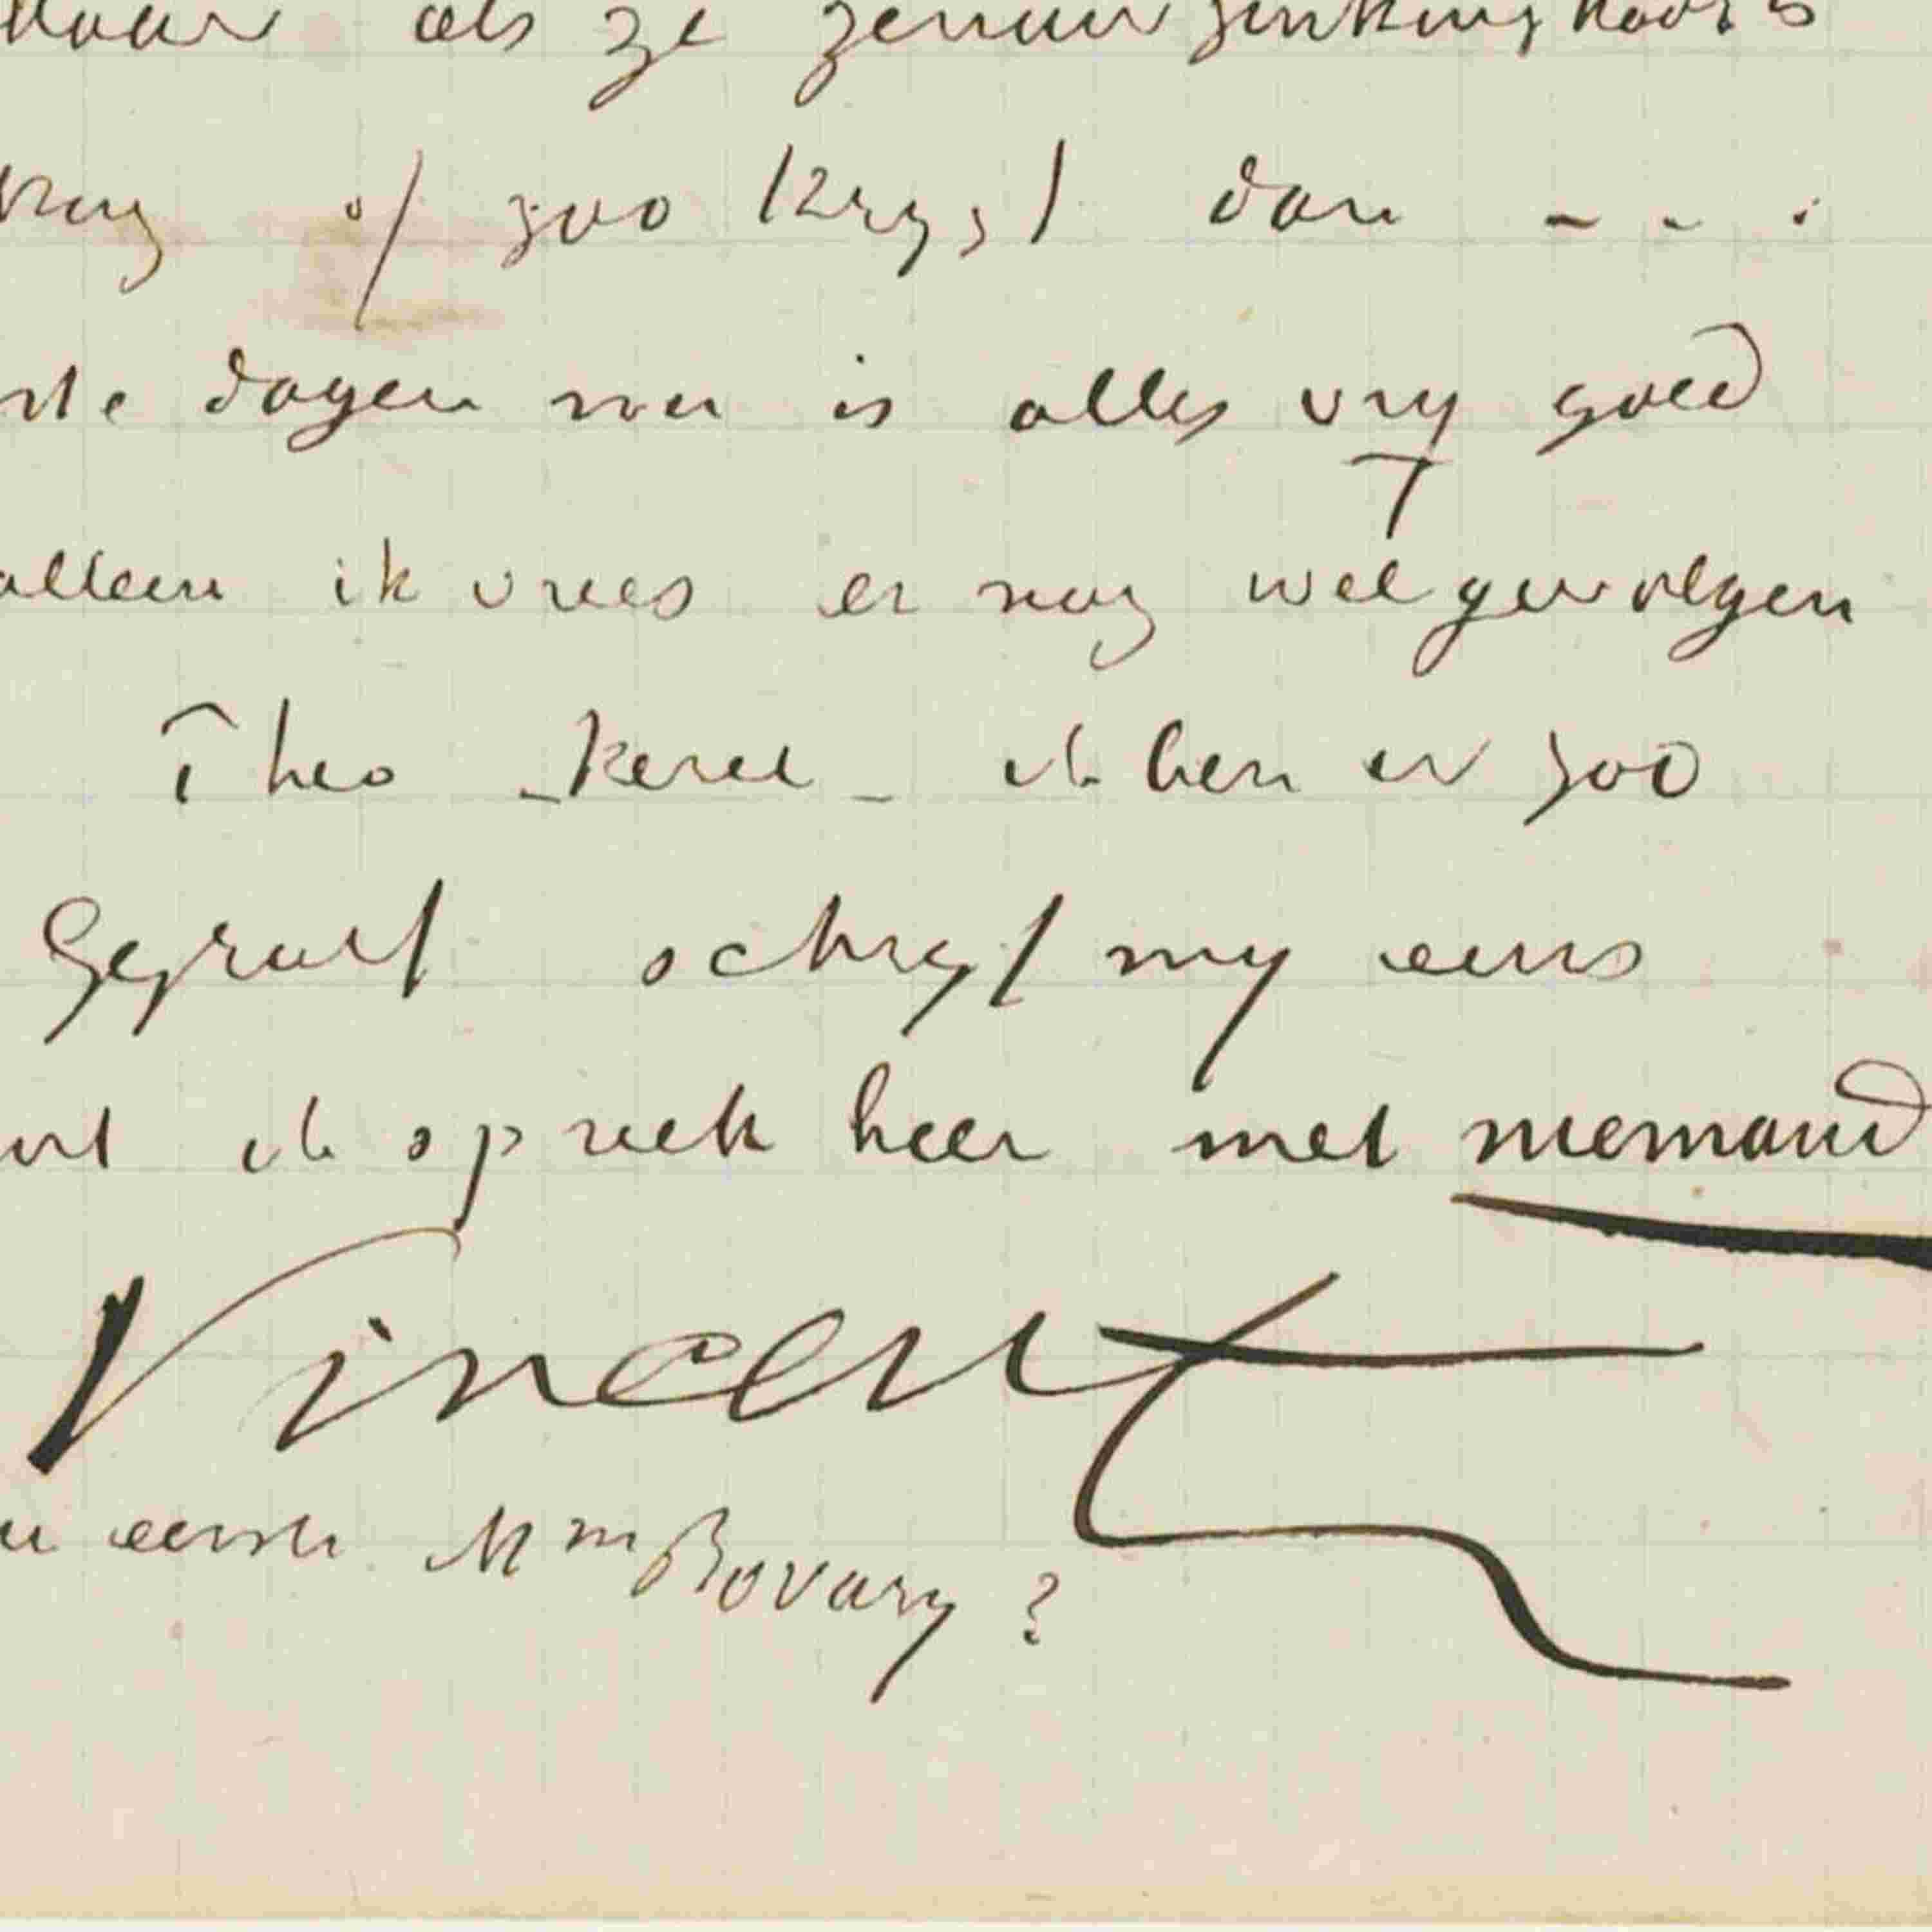 maar als ze zenuwzinkingkoorts
krijg of zoo krijgt dan - - .
ste dagen is alles vrij goed
alleen ik vrees er nog wel gevolgen
Theo - kerel - ik ben er zoo
schrijf mij eens
ik spreek hier met niemand
Vincent
eerste Mme Bovary?